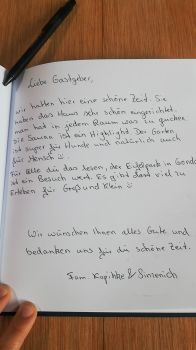 Liebe Gastgeber,
wir hatten hier eine schöne Zeit. Sie
haben das Haus sehr schön eingerichtet.
man hat in jedem Raum was zu gucken
Die Sauna ist ein Highlight. Der Garten
ist super für Hunde und natürlich auch
für Mensch ☺.
Für alle die das lesen, der Eifelpark in Gondorf
ist ein Besuch wert. Es gibt dort viel zu
Erleben für Groß und Klein ☺
Wir wünschen Ihnen alles Gute und
bedanken uns für die schöne Zeit.
Fam. &